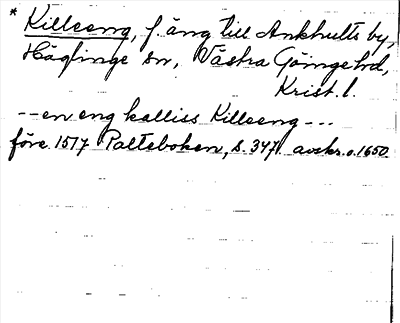 * Killeeng, f. äng till Ankhults by,
Häglinge sn, Västra Göinge hd,
Krist. l.
-- en eng kalliss Killeeng ---
före 1517 Palteboken, s. 347. avskr. o. 1650